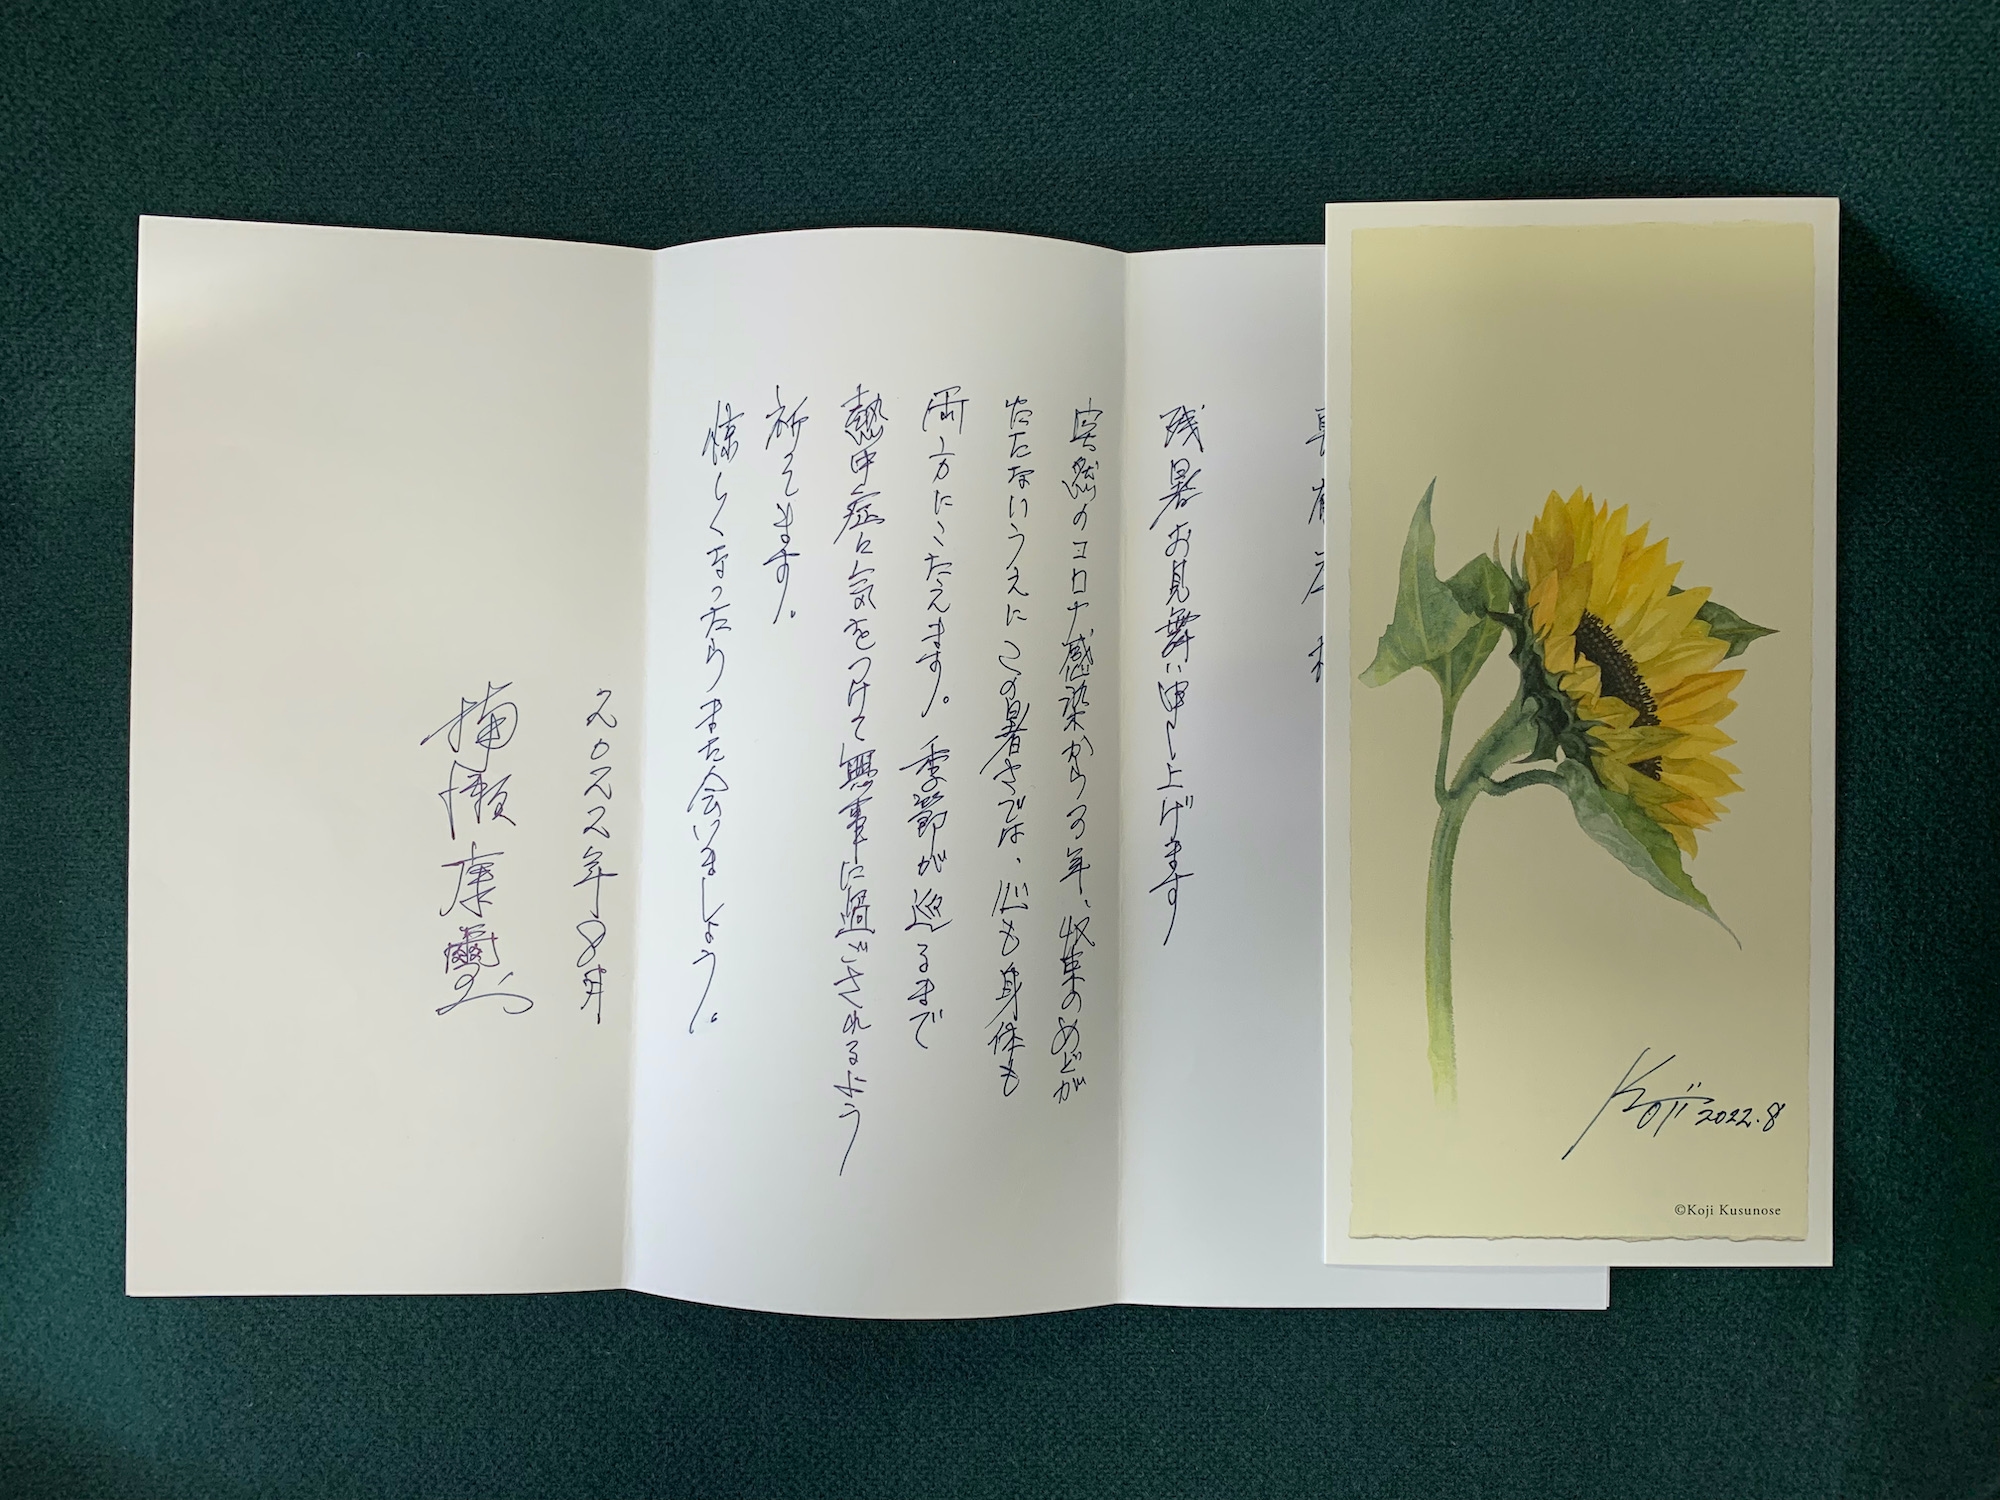 残暑お見舞い申し上げます
突然のコロナ感染から3年、収束のめどが
たたないうえにこの暑さでは、心も身体も
両方にこたえます。季節が巡るまで
熱中症に気をつけて無事に過ごされるよう
祈てます。
涼しくなったらまた会いましょう。
二〇二二年8月
康
Koji 2022.8
©Koji Kusunose